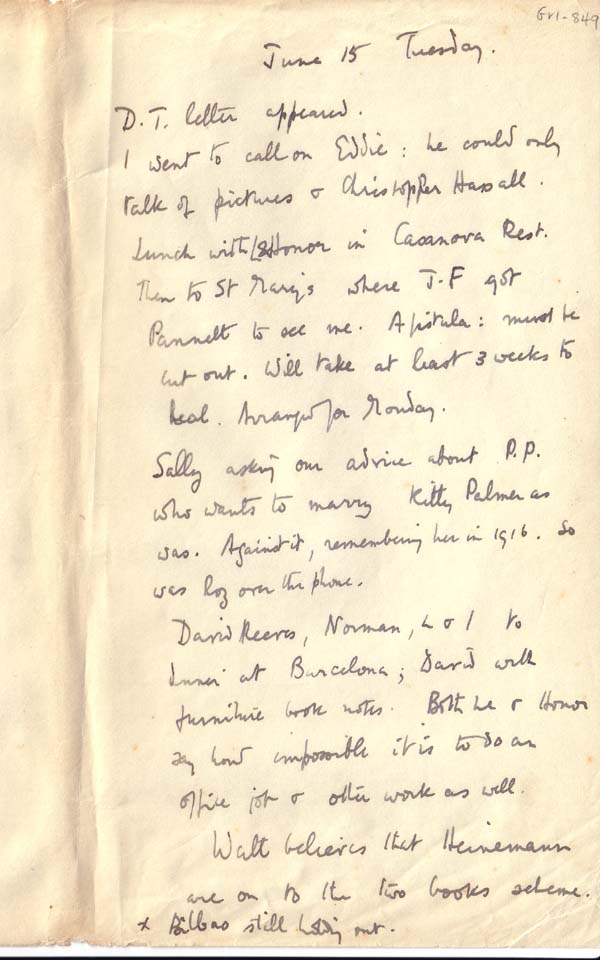 GV1-849
June 15 Tuesday.
D.T. letter appeared.
I went to call on Eddie: he could only
talk of pictures & Christopher Hassall.
Lunch with L & Honor in Casanova Rest.
Then to St Mary's where J-F got
Pannett to see me. A fistula: must be
cut out. Will take at least 3 weeks to
heal. Arranged for Monday.
Sally asking our advice about P.P.
who wants to marry Kitty Palmer as
was. Against it, remembering her in 1916. So
was Roz over the phone.
David Reeves, Norman, L & I to
dinner at Barcelona; David with
furniture book notes. Both he & Honor
say how impossible it is to do an
office job & other work as well.
Watt believes that Heinemann
are on to the two books scheme.
x Bilbao still holding out.